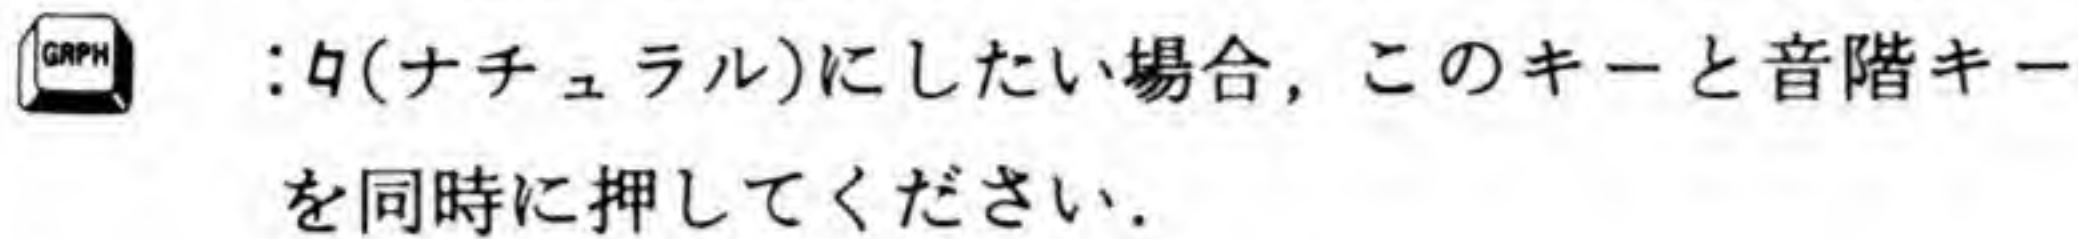 GRPH :♮(ナチュラル)にしたい場合，このキーと音階キー
を同時に押してください．